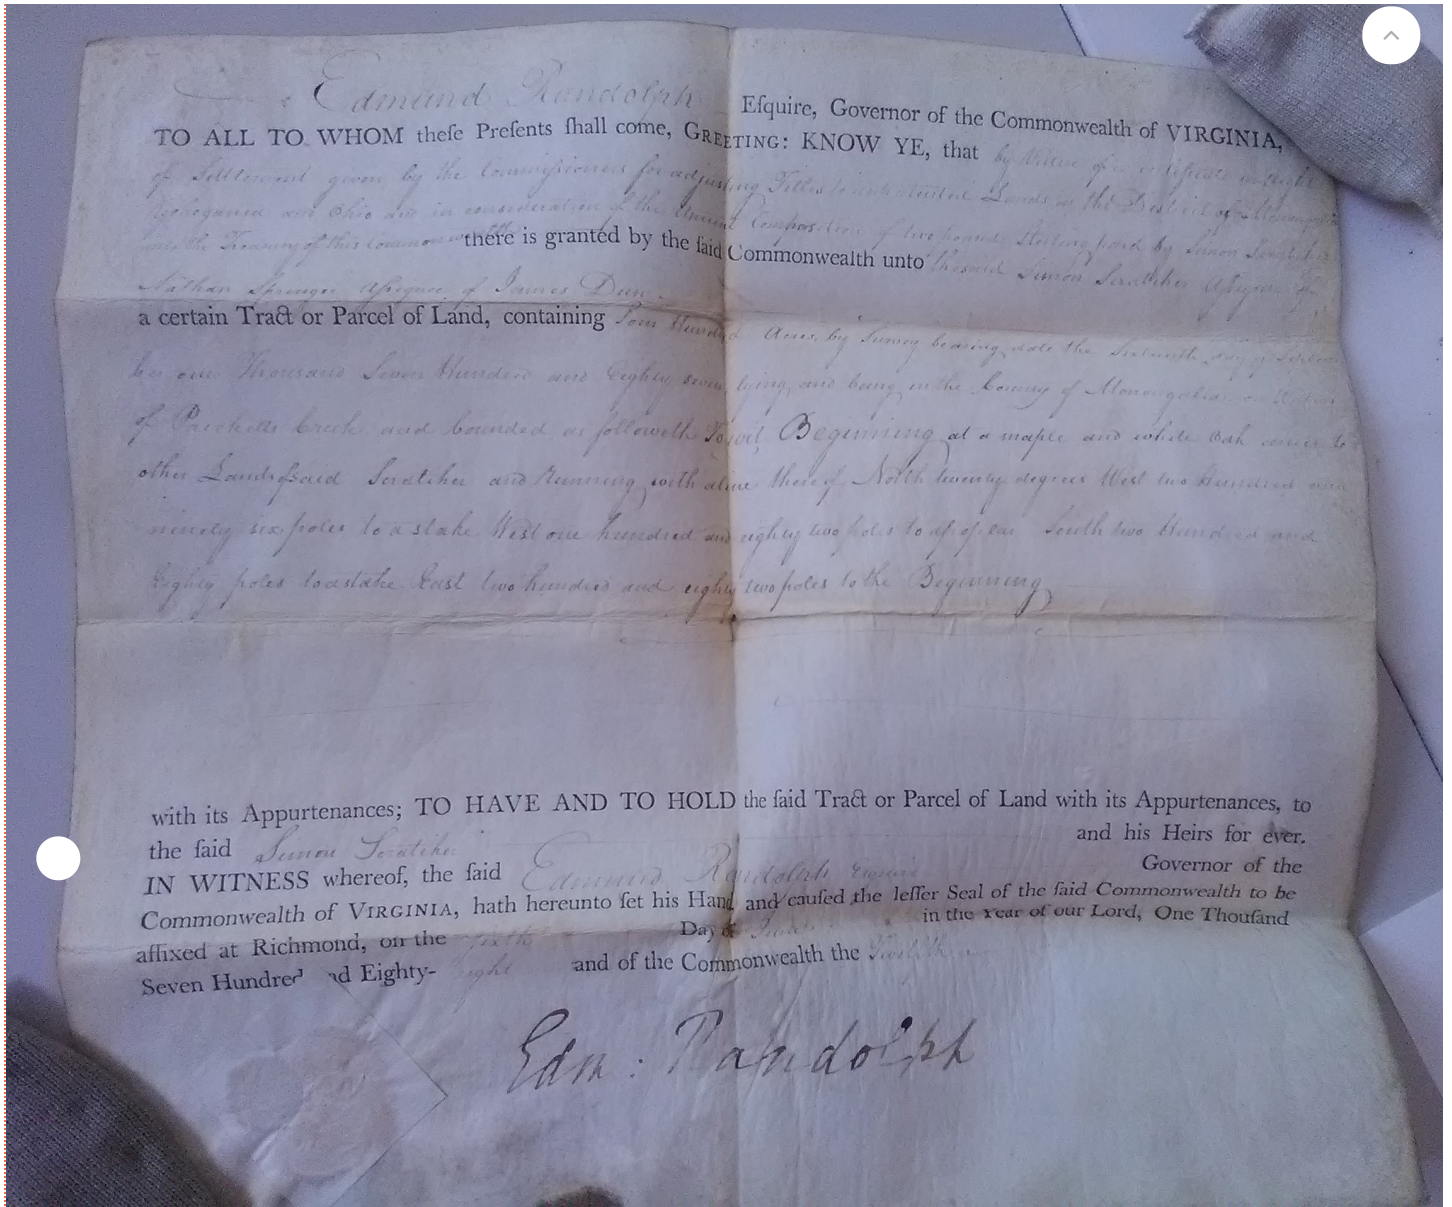 Edmund Randolph Eſquire, Governor of the Commonwealth of VIRGINIA,
TO ALL TO WHOM theſe Preſents ſhall come, GREETING: KNOW YE, that by Virtue of a certificate in right
of Settlement given by the Commiſsioners for adjusting Titles to unpatented Lands in the District of
and Ohio and in consideration of the Ancient Composition of two pounds Sterling paid by Simon
into the Treasury of this Commonwealth there is granted by the ſaid Commonwealth unto the said Simon Scratcher Aſsignee of
Nathan Springer Aſsignee of James Dun
a certain Tract or Parcel of Land, containing Four Hundred Acres, by Survey bearing date the Sixteenth day of
ber one Thousand Seven Hundred and Eighty seven lying and being in the County of Monongalia on
of Creek and bounded as followeth To wit Beginning at a maple and white Oak corner to
other Lands of said Scratcher and Running with a line thereof North twenty degrees West two Hundred and
ninety six poles to a stake West one hundred and eighty two poles to a South two Hundred and
Eighty poles to a stake East two hundred and eighty two poles to the Beginning
with its Appurtenances; TO HAVE AND TO HOLD the ſaid Tract or Parcel of Land with its Appurtenances, to
the ſaid Simon Scratcher and his Heirs for ever.
IN WITNESS whereof, the ſaid Edmund Randolph Esquire Governor of the
Commonwealth of VIRGINIA, hath hereunto ſet his Hand and cauſed the leſſer Seal of the ſaid Commonwealth to be
affixed at Richmond, on the Day of in the Year of our Lord, One Thouſand
Seven Hundred and Eighty- eight and of the Commonwealth the Twelfth
Edm: Randolph